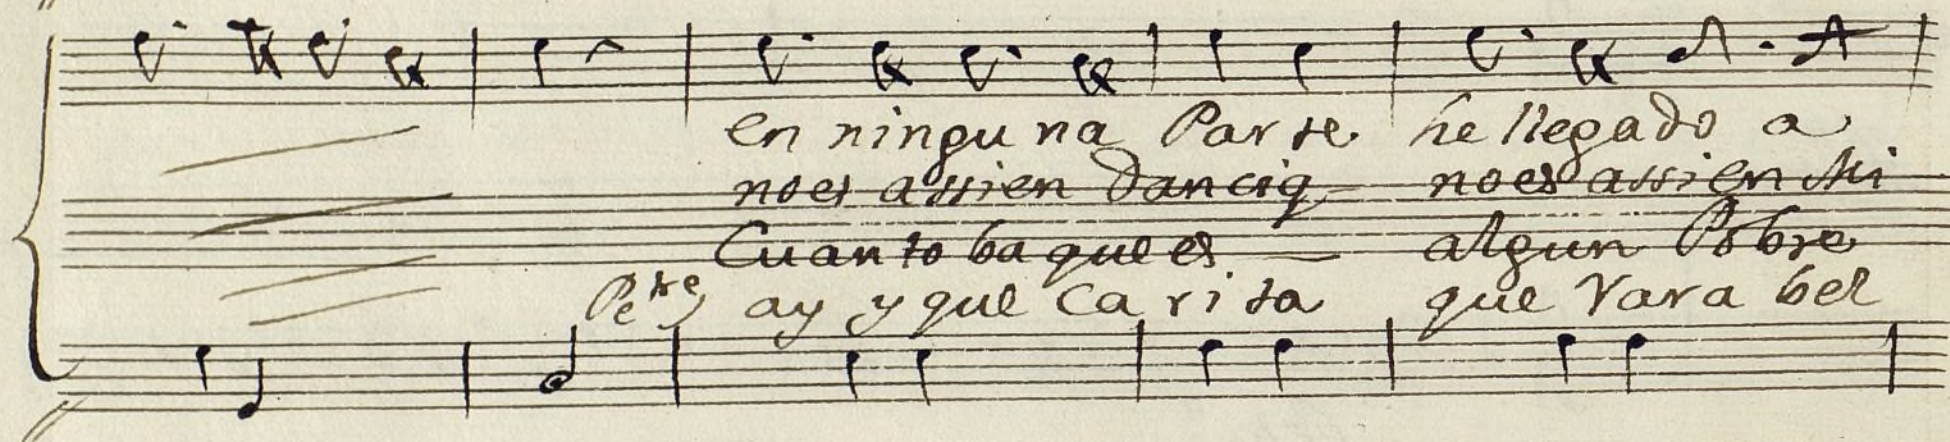 en ninguna Parte he llegado a
noes assien danciq noes assien Mi
Cuanto ba que es algun Pobre
Petre ay y que Carita que Rara bel